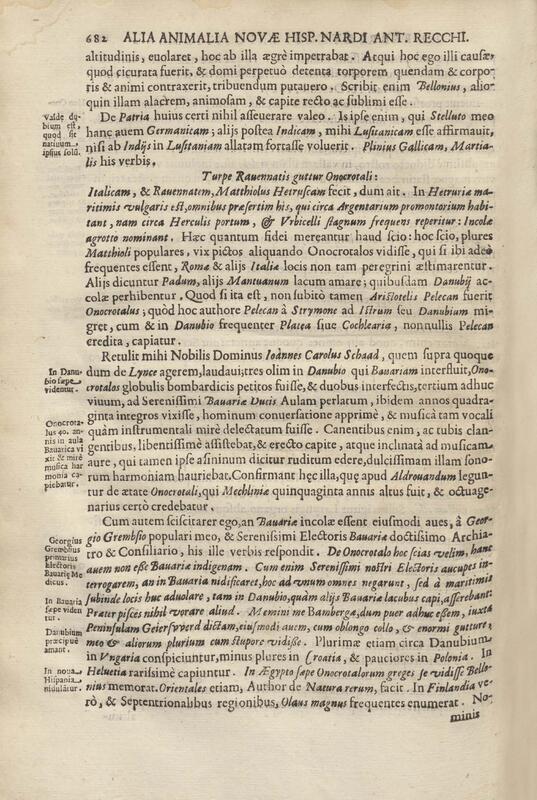 682 ALIA ANIMALIA NOVÆ HISP. NARDI ANT. RECCHI.
altitudinis, euolaret, hoc ab illa ægrè impetrabat. Atqui hoc ego illi causæ,
quod cicurata fuerit, & domi perpetuò detenta torporem quendam & corpo-
ris & animi contraxerit, tribuendum putauero. Scribit enim Bellonius, alio-
quin illam alacrem, animosam, & capite recto ac sublimi esse.
Valdè du-
bium est,
quod sit
natiuum
ipsius solũ.
De Patria huius certi nihil asseuerare valeo. Is ipse enim, qui Stelluto meo
hanc auem Germanicam; alijs postea Indicam, mihi Lusitanicam esse affirmauit,
nisi ab Indijs in Lusitaniam allatam fortasse voluerit. Plinius Gallicam, Martia-
lis his verbis,
Turpe Rauennatis guttur Onocrotali:
Italicam, & Rauennatem, Matthiolus Hetruscam fecit, dum ait. In Hetruriæ ma-
ritimis vulgaris est, omnibus præsertim his, qui circa Argentarium promontorium habi-
tant, nam circa Herculis portum, & Vrbicelli stagnum frequens reperitur: Incolæ
agrotto nominant. Hæc quantum fidei mereantur haud scio: hoc scio, plures
Matthioli populares, vix pictos aliquando Onocrotalos vidisse, qui si ibi adeò
frequentes essent, Romæ & alijs Italiæ locis non tam peregrini æstimarentur.
Alijs dicuntur Padum, alijs Mantuanum lacum amare; quibusdam Danubij ac-
colæ perhibentur. Quod si ita est, non subitò tamen Aristotelis Pelecan fuerit
Onocrotalus; quòd hoc authore Pelecan à Strymone ad Istrum seu Danubium mi-
gret, cum & in Danubio frequenter Platea siue Cochlearia, nonnullis Pelecan
credita, capiatur.
In Danu-
bio sæpe
videntur.
Retulit mihi Nobilis Dominus Ioànnes Carolus Schaad, quem supra quoque
dum de Lynce agerem, laudaui; tres olim in Danubio qui Bauariam interfluit, Ono-
crotalos globulis bombardicis petitos fuisse, & duobus interfectis, tertium adhuc
viuum, ad Serenissimi Bauariæ Ducis Aulam perlatum, ibidem annos quadra-
ginta integros vixisse, hominum conuersatione apprimè, & musicâ tam vocali
quàm instrumentali mirè delectatum fuisse. Canentibus enim, ac tubis clan-
gentibus, libentissimè assistebat, & erecto capite, atque inclinatâ ad musicam
aure, qui tamen ipse asininum dicitur ruditum edere, dulcissimam illam sono-
rum harmoniam hauriebat. Confirmant hęc illa, quę apud Aldrouandum legun-
tur de ætate Onocrotali, qui Mechliniæ quinquaginta annis altus fuit, & octuage-
narius certò credebatur.
Onocrota-
lus 40. an-
nis in aula
Bauarica vi
xit & mirè
musica har
monia ca-
piebatur.
Cum autem sciscitarer ego, an Bauariæ incolæ essent eiusmodi aues, à Geor-
gio Grembsio populari meo, & Serenissimi Electoris Bauariæ doctissimo Archia-
tro & Consiliario, his ille verbis respondit. De Onocrotalo hoc scias velim, hanc
auem non esse Bauariæ indigenam. Cum enim Serenissimi nostri Electoris aucupes in-
terrogarem, an in Bauaria nidificaret, hoc ad vnum omnes negarunt, sed à maritimis
subinde locis huc aduolare, tam in Danubio, quàm alijs Bauariæ lacubus capi, asserebant.
Præter pisces nihil vorare aliud. Memini me Bambergæ, dum puer adhuc essem, iuxta
Peninsulam Geiersperd dictam, eiusmodi auem, cum oblongo collo, & enormi gutture,
meo & aliorum plurium cum stupore vidisse. Plurimæ etiam circa Danubium
in Vngaria conspiciuntur, minus plures in Croatia, & pauciores in Polonia. In
Heluetia rarissimè capiuntur. In Ægypto sæpe Onocrotalorum greges se vidisse Bello-
nius memorat. Orientales etiam, Author de Natura rerum, facit. In Finlandia ve-
rò, & Septentrionalibus regionibus, Olaus magnus frequentes enumerat. No-
minis
Georgius
Grembsius
primarius
Electoris
Bauariæ Me
dicus.
In Bauaria
sæpe viden
tur.
Danubium
præcipuè
amant.
In noua
Hispania
nidulãtur.